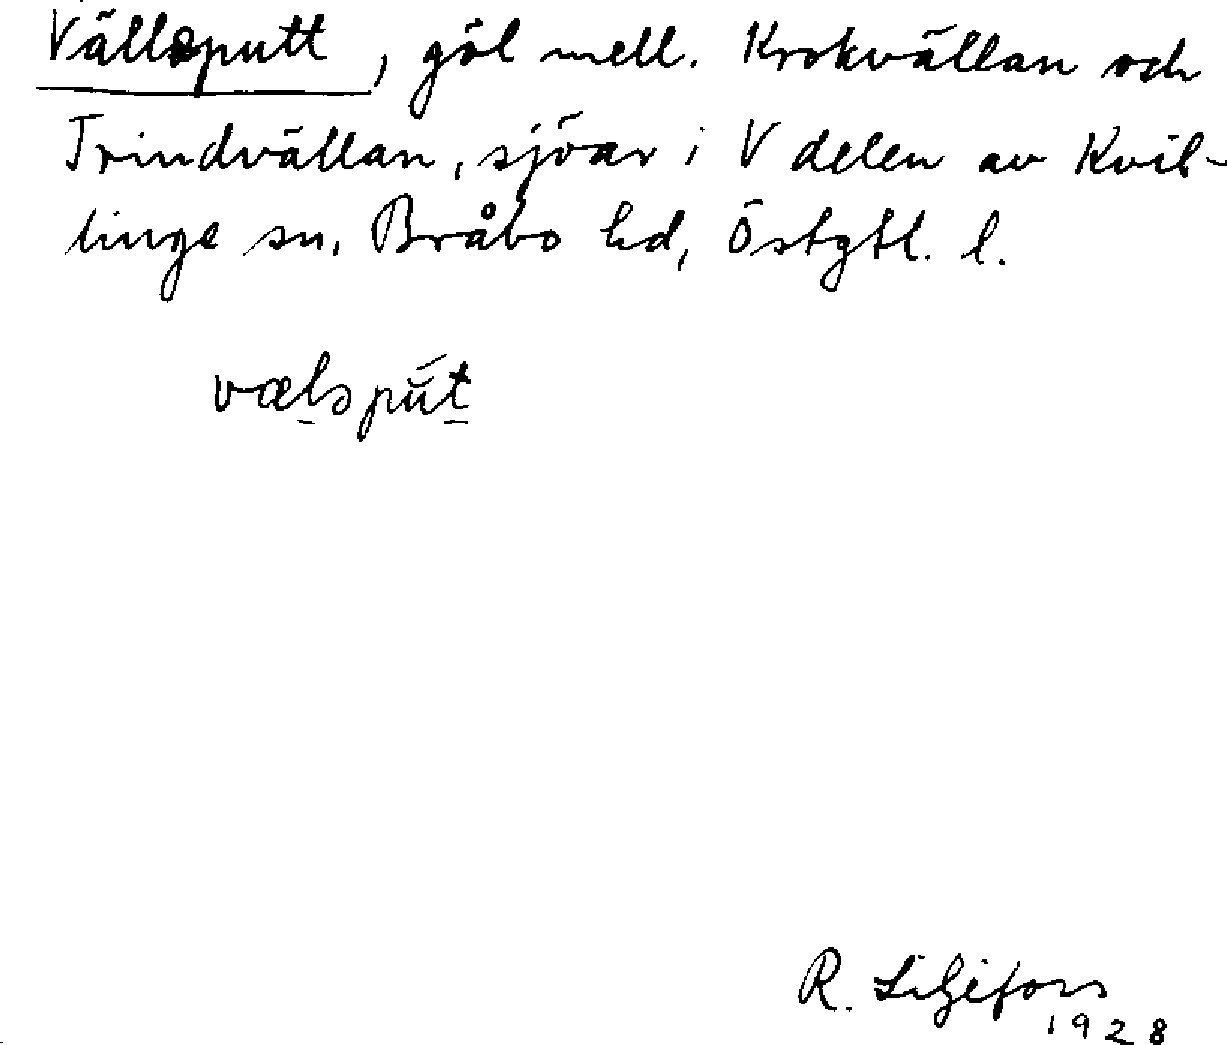 Vällsputt, göl mell. Krokvällan och
Trindvällan, sjöar i V delen av Kvil-
linge sn, Bråbo hd, Östgtl. l.
vælspút
R. Liljefors
1928